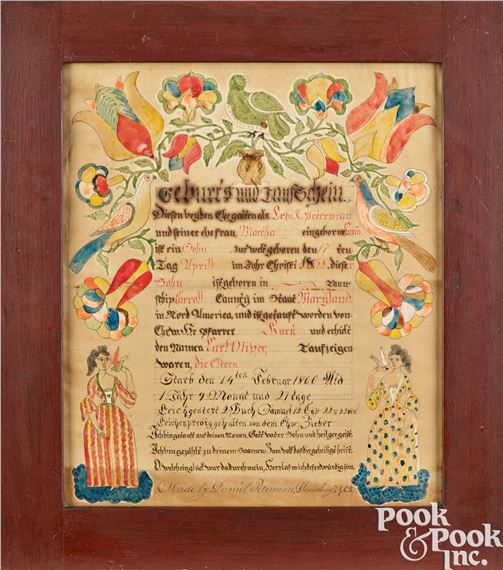 Geburts und Taufschein
Diesen beyden Ehegatten als Levi R. Peterman
und seiner ehe frau Martha eine geborne
ist ein Sohn zur welt geboren den 17 ten
Tag April im Jahr Christi 18 dieser
Sohn ist geboren in Taun-
schip Carroll Caunty im Staat Maryland
in Nord America, und ist getauft worden von
Ehrw. Hr. pfarrer und erhielt
den Namen Carl Oliver, Taufzeigen
waren, die Eltern
Starb den 14ten Februar 1860 Alt
1 Jahr 9 Monat und 27 tage
Leichentext 2 Buch Samuel 12 Cap 22 u 23
Leichenpredig gehalten von dem Ehrw. Zieber
Ich bin getauft auf deinen Namen, Gott vater Sohn und heilger geist
Ich bin gezählt zu deinem Saamen, Zum volk das dir geheiliget heist
O welch ein glück war dadurch mein, Herr las mich dessen würdig sein.
Made by Daniel Peterman, Shrewsbury
POOK
& POOK
Inc.